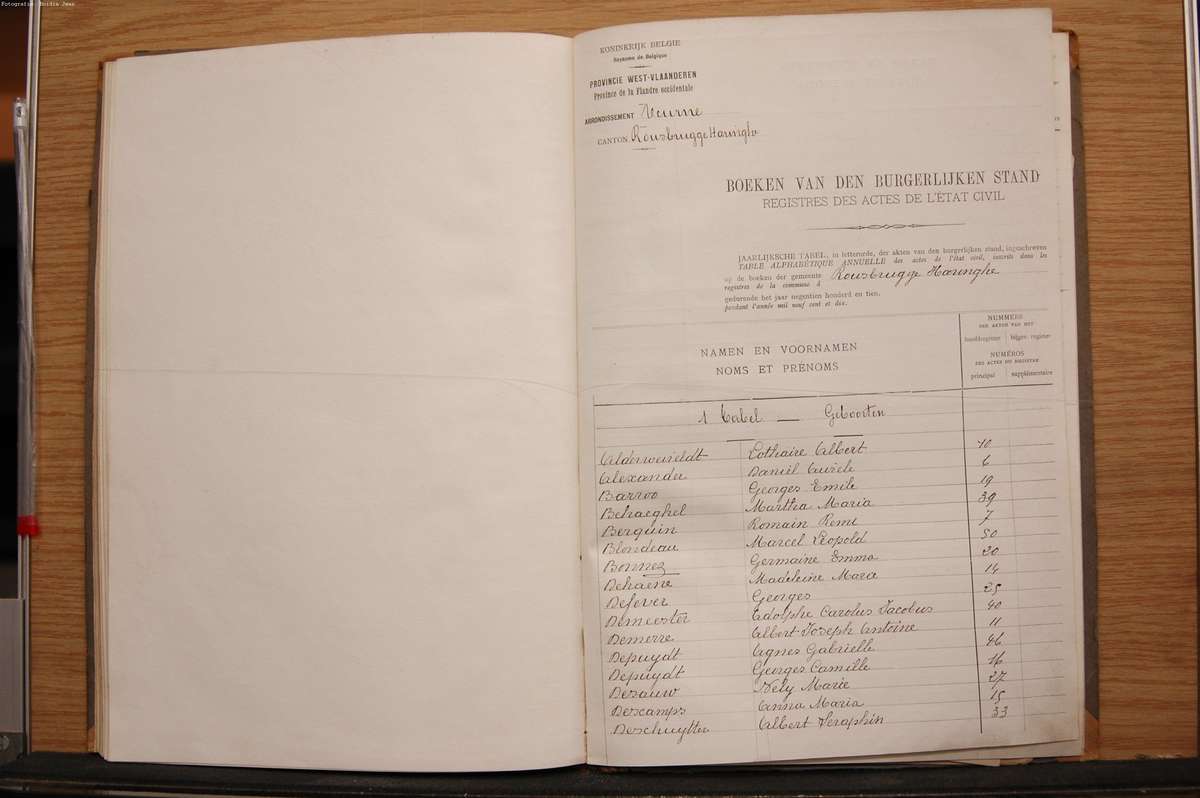 Fotografie: Boidin Jean
KONINKRIJK BELGIE
Royaume de Belgique
PROVINCIE WEST-VLAANDEREN
Province de la Flandre occidentale
ARRONDISSEMENT Veurne
CANTON Rousbrugge Haringhe
BOEKEN VAN DEN BURGERLIJKEN STAND
REGISTRES DES ACTES DE L'ÉTAT CIVIL
JAARLIJKSCHE TABEL, in letterorde, der akten van den burgerlijken stand, ingeschreven
TABLE ALPHABÉTIQUE ANNUELLE des actes de l'état civil, inscrits dans les
op de boeken der gemeente Rousbrugge Haringhe
registres de la commune d
gedurende het jaar negentien honderd en tien.
pendant l'année mil neuf cent et dix.
NAMEN EN VOORNAMEN
NOMS ET PRÉNOMS
NUMMERS
DER AKTEN VAN HET
hoofdregister bijgev. register
NUMÉROS
DES ACTES DU REGISTRE
principal supplémentaire
1 Tabel — Geboorten
Alderweireldt Lothaire Albert 10
Alexander Daniel Aurèle 6
Barroo Georges Emile 19
Behaeghel Martha Maria 39
Berquin Romain Remi 7
Blondeau Marcel Léopold 50
Bonnez Germaine Emma 20
Dehaene Madeleine Marie 14
Defever Georges 25
Demeester Adolphe Carolus Jacobus 40
Demerre Albert Joseph Antoine 11
Depuydt Agnes Gabrielle 46
Depuydt Georges Camille 16
Desauw Nely Marie 27
Descamps Anna Maria 15
Deschuytter Albert Seraphin 33